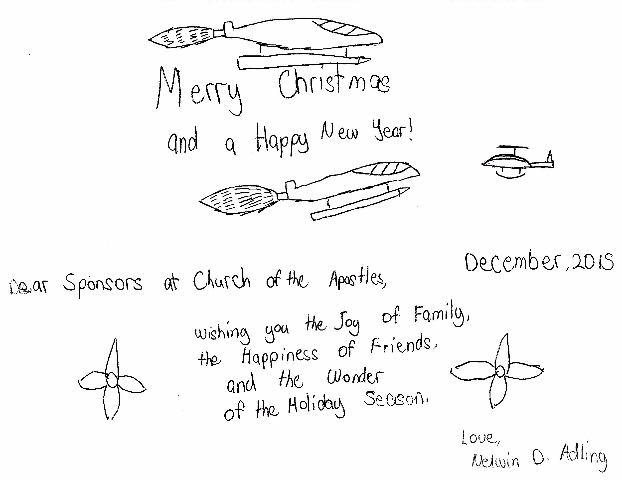 Merry Christmas
and a Happy New Year!
December, 2015
Dear Sponsors at Church of the Apostles,
wishing you the Joy of Family,
the Happiness of Friends,
and the Wonder
of the Holiday Season.
Love,
Nelwin D. Adling